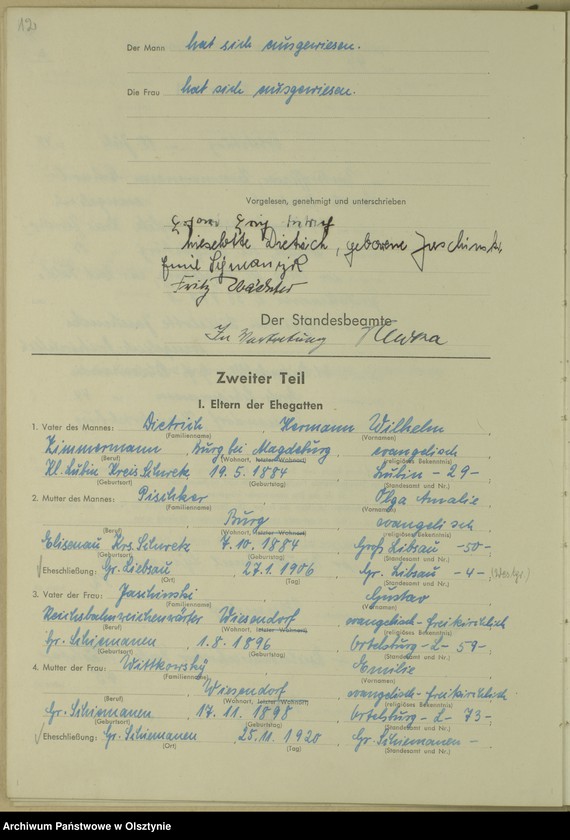 12.
Der Mann hat sich ausgewiesen.
Die Frau hat sich ausgewiesen.
Vorgelesen, genehmigt und unterschrieben
Lieselotte Dietrich, geborene Jaschinski
Emil Schmanzik
Fritz Wächter
Der Standesbeamte
In Vertretung
Zweiter Teil
I. Eltern der Ehegatten
1. Vater des Mannes: Dietrich Hermann Wilhelm
(Familienname) (Vornamen)
Zimmermann Burg bei Magdeburg evangelisch
(Beruf) (Wohnort, letzter Wohnort) (religiöses Bekenntnis)
Kl. Lubin Kreis Schwetz 19.5.1884 Lubin - 29 -
(Geburtsort) (Geburtstag) (Standesamt und Nr.)
2. Mutter des Mannes: Olga Amalie
(Familienname) (Vornamen)
Burg evangelisch
(Beruf) (Wohnort, letzter Wohnort) (religiöses Bekenntnis)
Elisenau Krs. Schwetz 7.10.1884 Groß Libsau - 50 -
(Geburtsort) (Geburtstag) (Standesamt und Nr.)
Eheschließung: Gr. Liebsau 27.1.1906 Gr. Libsau - 4 -
(Ort) (Tag) (Standesamt und Nr.)
3. Vater der Frau: Jaschinski Gustav
(Familienname) (Vornamen)
Reichsbahnweichenwärter Wiesendorf evangelisch-freikirchlich
(Beruf) (Wohnort, letzter Wohnort) (religiöses Bekenntnis)
Gr. Schiemanen 1.8.1896 Ortelsburg - L - 59 -
(Geburtsort) (Geburtstag) (Standesamt und Nr.)
4. Mutter der Frau: Wittkowsky Emilie
(Familienname) (Vornamen)
Wiesendorf evangelisch-freikirchlich
(Beruf) (Wohnort, letzter Wohnort) (religiöses Bekenntnis)
Gr. Schiemanen 17.11.1898 Ortelsburg - L - 73 -
(Geburtsort) (Geburtstag) (Standesamt und Nr.)
Eheschließung: Gr. Schiemanen 25.11.1920 Gr. Schiemanen -
(Ort) (Tag) (Standesamt und Nr.)
Archiwum Państwowe w Olsztynie